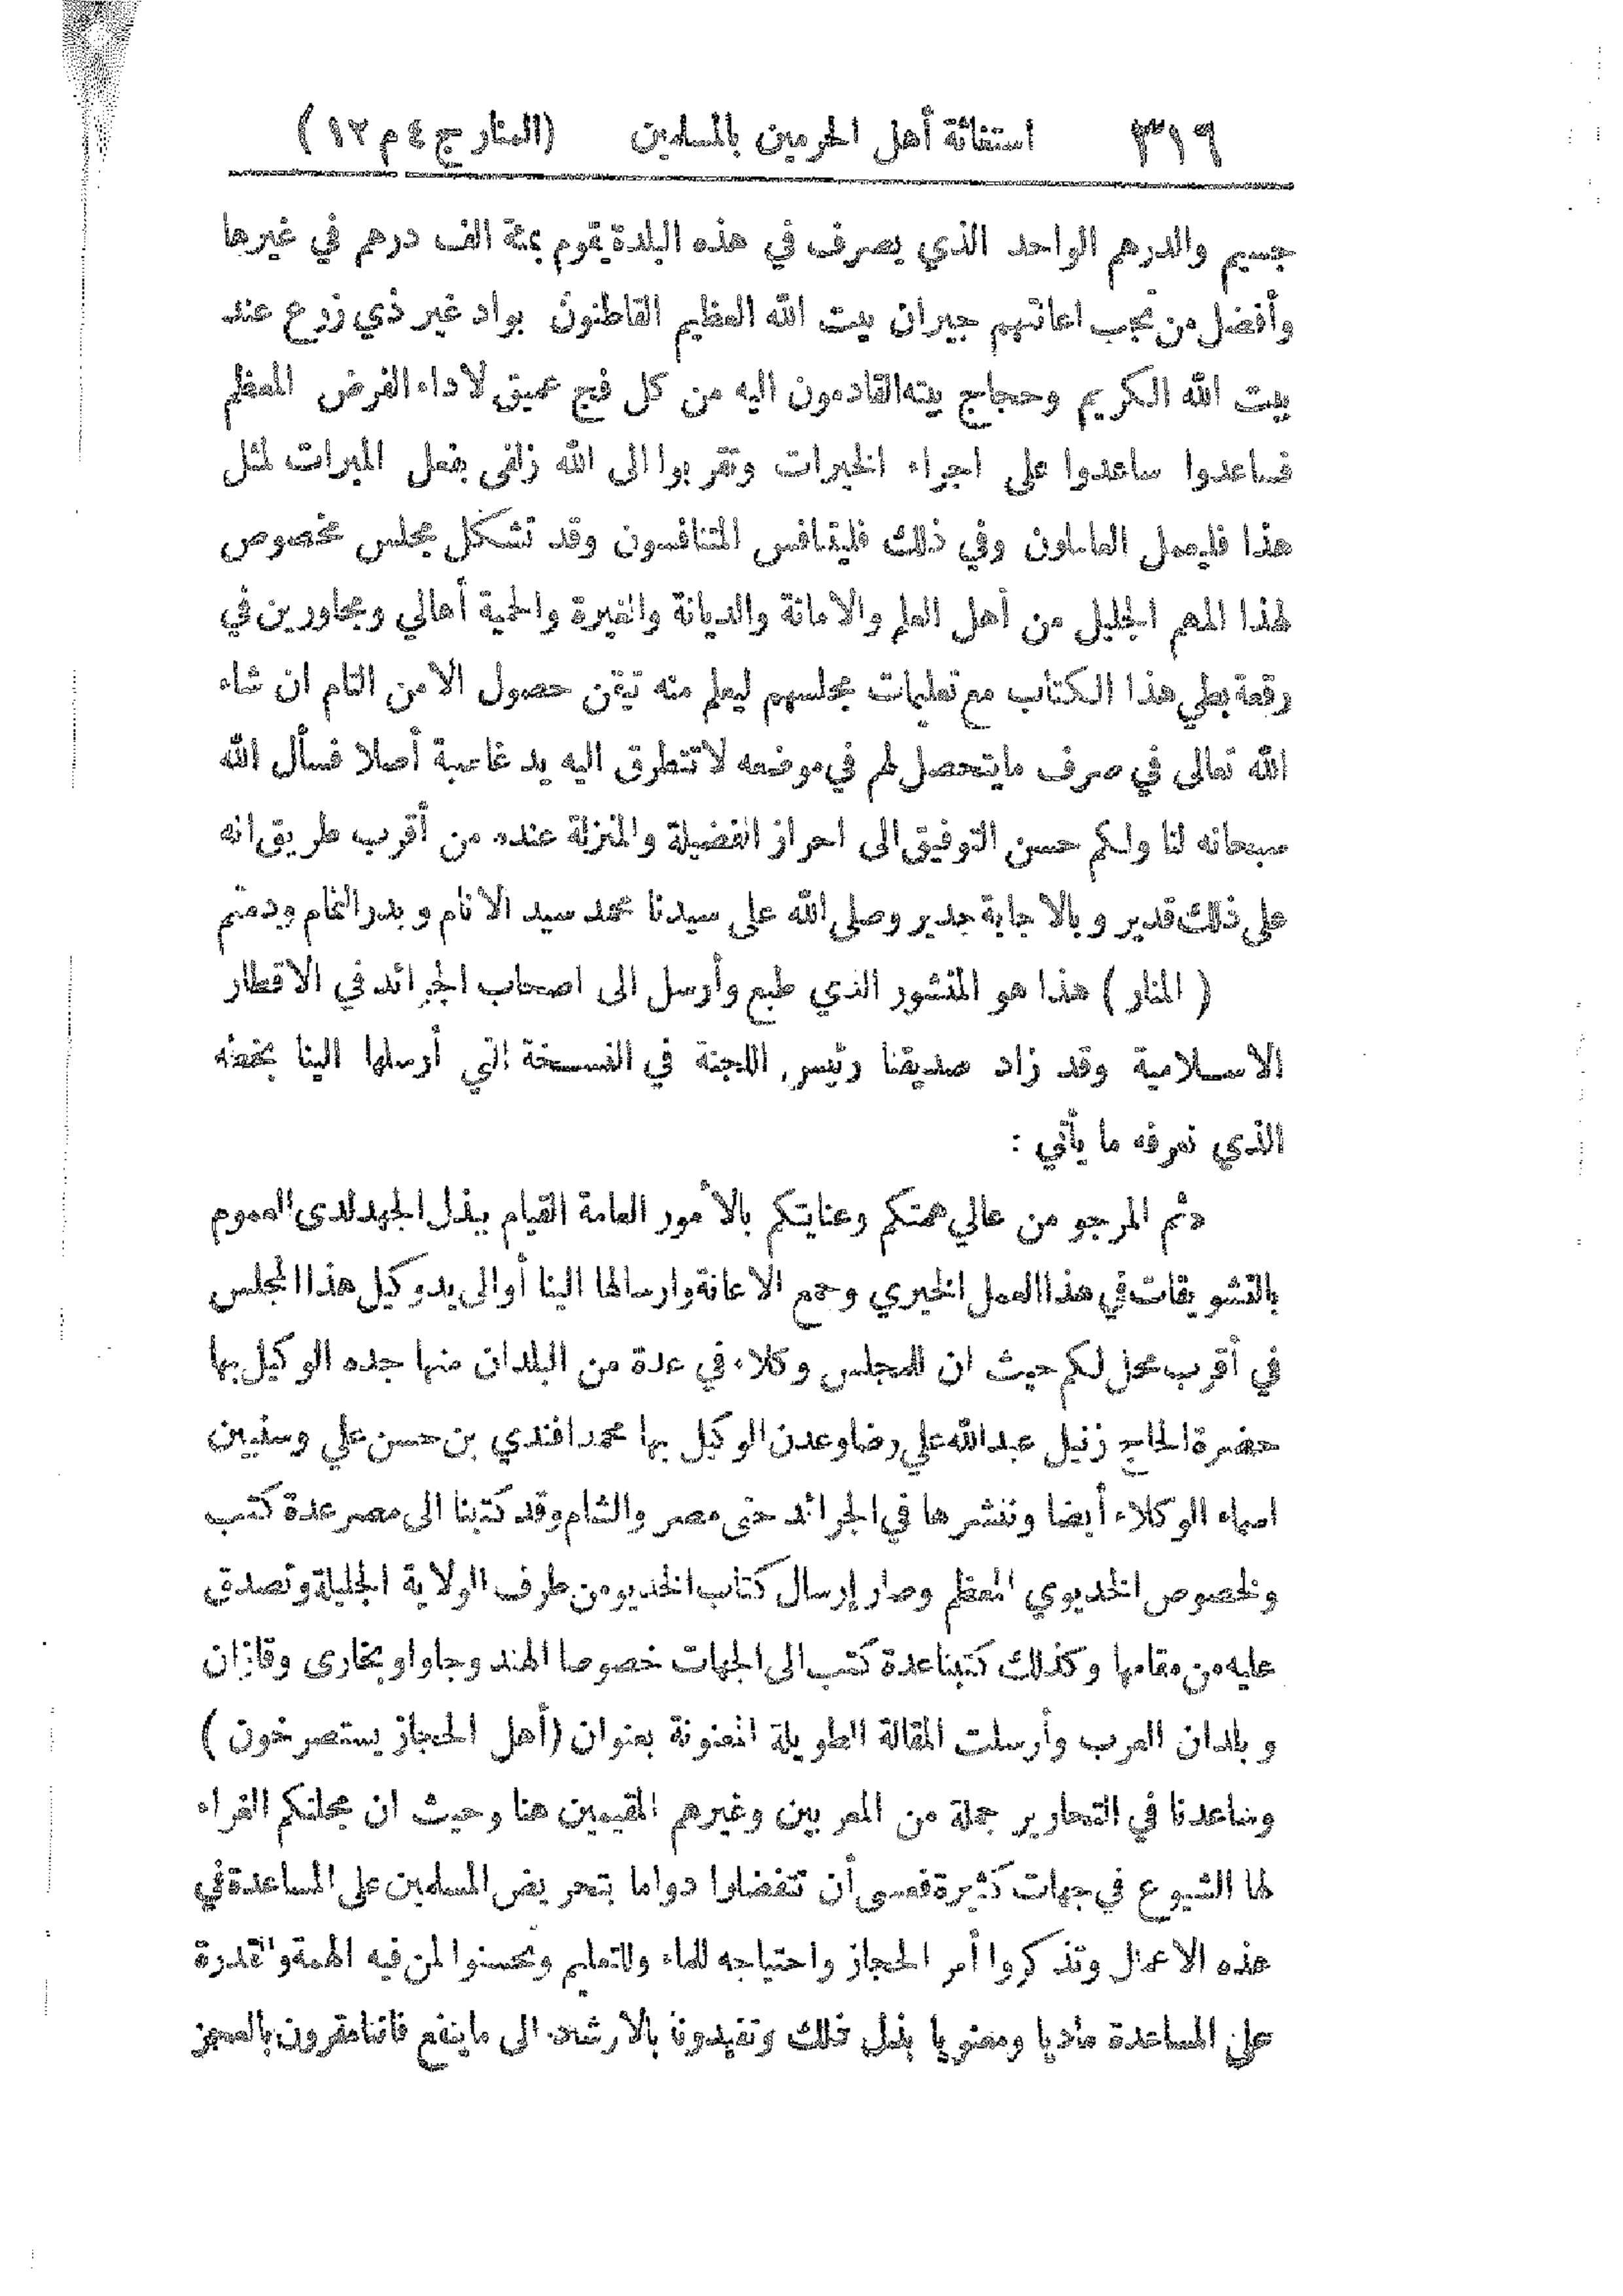 ٣١٦ استغاثة أهل الحرمين بالمسلمين (المنار ج ٤ م ١٢)
جسيم والدرهم الواحد الذي يصرف في هذه البلدة يقوم بمئة الف درهم في غيرها
وأفضل من تجب اعانتهم جيران بيت الله العظيم القاطنون بواد غير ذي زرع عند
بيت الله الكريم وحجاج بيته القادمون اليه من كل فج عميق لاداء الفرض المعظم
فساعدوا ساعدوا على اجراء الخيرات وتقربوا الى الله زلفى بفعل المبرات لمثل
هذا فليعمل العاملون وفي ذلك فليتنافس المتنافسون وقد تشكل مجلس مخصوص
لهذا المهم الجليل من أهل العلم والامانة والديانة والغيرة والحمية أهالي ومجاورين في
رقعة بطي هذا الكتاب مع تعليمات مجلسهم ليعلم منه تيقن حصول الامن التام ان شاء
الله تعالى في صرف ما يتحصل لهم في موضعه لا تتطرق اليه يد غاصبة أصلا فسأل الله
سبحانه لنا ولكم حسن التوفيق الى احراز الفضيلة والمنزلة عنده من أقرب طريق انه
على ذلك قدير وبالاجابة جدير وصلى الله على سيدنا محمد سيد الانام وبدر التمام ودمتم
( المنار ) هذا هو المنشور الذي طبع وأرسل الى اصحاب الجرائد في الاقطار
الاسلامية وقد زاد صديقنا رئيس اللجنة في النسخة التي أرسلها الينا بخطه
الذي نعرفه ما يأتي :
« ثم المرجو من عالي همتكم وعنايتكم بالأمور العامة القيام ببذل الجهد لدى العموم
بالتشويقات في هذا العمل الخيري وجمع الاعانة وارسالها الينا أو الى يد وكيل هذا المجلس
في أقرب محل لكم حيث ان للمجلس وكلاء في عدة من البلدان منها جده الوكيل بها
حضرة الحاج زنيل عبدالله علي رضا وعدن الوكيل بها محمد افندي بن حسن علي وسنبين
اسماء الوكلاء أيضا وننشرها في الجرائد حتى مصر والشام وقد كتبنا الى مصر عدة كتب
ولخصوص الخديوي المعظم وصار إرسال كتاب الخديو من طرف الولاية الجليلة وتصدق
عليه من مقامها وكذلك كتبنا عدة كتب الى الجهات خصوصا الهند وجاوا وبخارى وقازان
وبلدان العرب وأرسلت المقالة الطويلة المعنونة بعنوان (أهل الحجاز يستصرخون )
وساعدنا في التحارير جملة من المعربين وغيرهم المقيمين هنا وحيث ان مجلتكم الغراء
لها الشيوع في جهات كثيرة فعسى أن تتفضلوا دواما بتحريض المسلمين على المساعدة في
هذه الاعمال وتذكروا أمر الحجاز واحتياجه للماء والتعليم وتحسنوا لمن فيه الهمة والقدرة
على المساعدة ماديا ومعنويا بذل ذلك وتفيدونا بالارشاد الى ما ينفع فاننا مقرون بالعجز